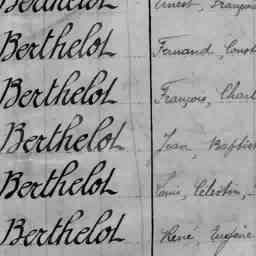 Berthelot Ernest, François
Berthelot Fernand, Const
Berthelot François, Charl
Berthelot Jean, Baptist
Berthelot Louis, Célestin,
Berthelot René, Eugène